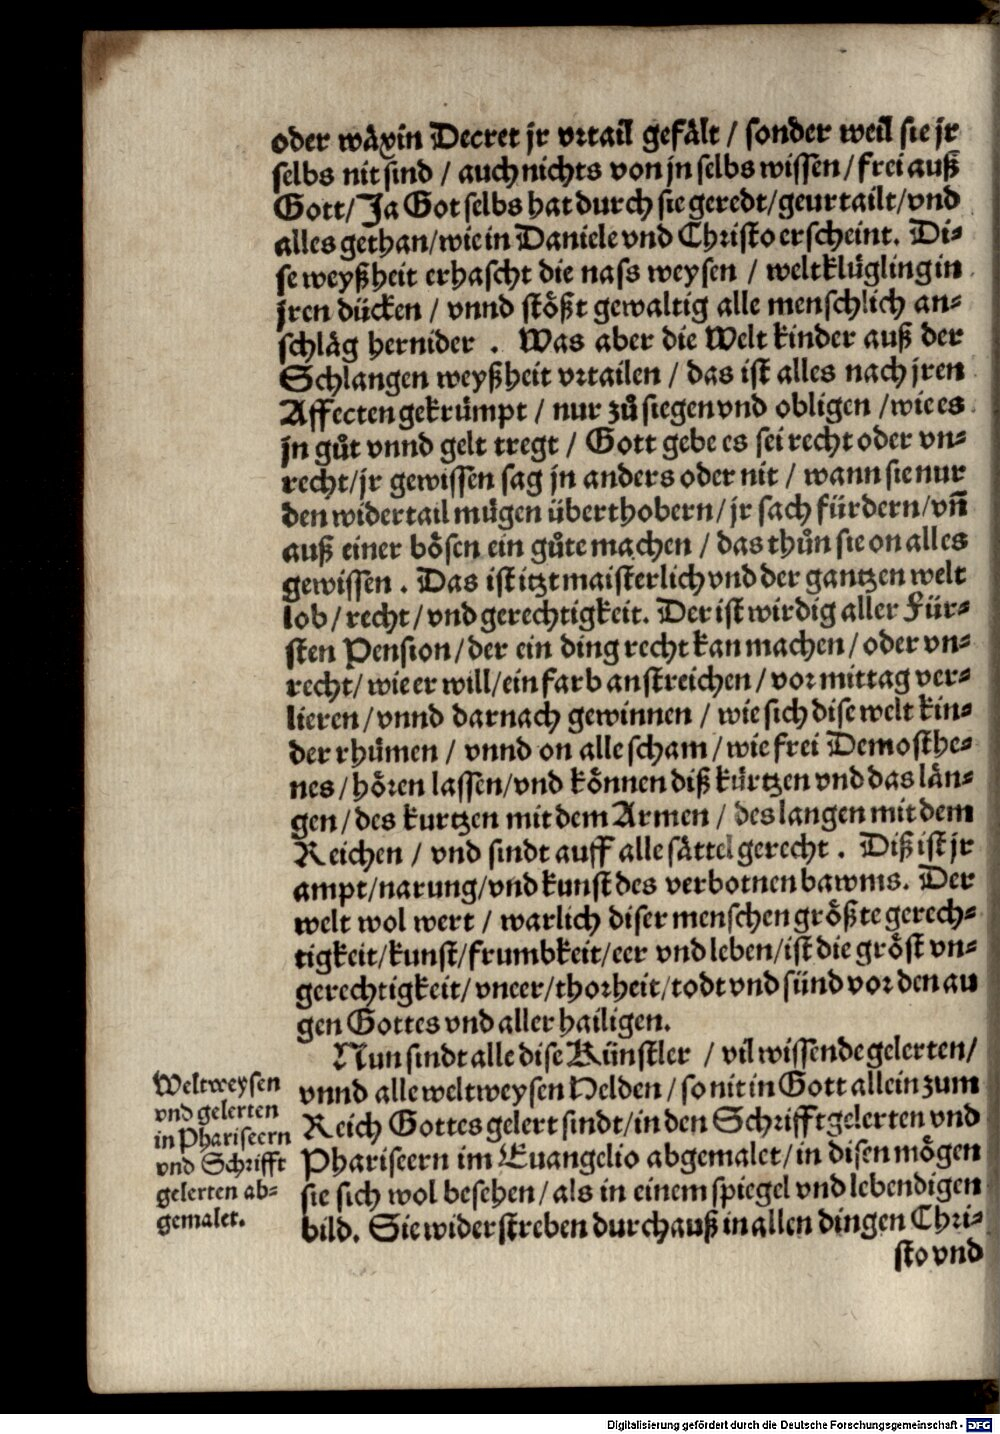 oder wäxin Decret jr vrtail gefält / sonder weil sie jr
selbs nit sind / auch nichts von jn selbs wissen / frei auß
Gott / Ja Got selbs hat durch sie geredt / geurtailt / vnd
alles gethan / wie in Daniele vnd Christo erscheint. Di⸗
se weyßheit erhascht die nass weysen / weltklügling in
jren dücken / vnnd stößt gewaltig alle menschlich an⸗
schläg hernider . Was aber die Welt kinder auß der
Schlangen weyßheit vrtailen / das ist alles nach jren
Affecten gekrümpt / nur zů siegen vnd obligen / wie es
jn gůt vnnd gelt tregt / Gott gebe es sei recht oder vn⸗
recht / jr gewissen sag jn anders oder nit / wann sie nur
den widertail mügen überthobern / jr sach fürdern / vñ
auß einer bösen ein gůte machen / das thůn sie on alles
gewissen . Das ist itzt maisterlich vnd der gantzen welt
lob / recht / vnd gerechtigkeit. Der ist wirdig aller Für⸗
sten Pension / der ein ding recht kan machen / oder vn⸗
recht / wie er will / ein farb anstreichen / vor mittag ver⸗
lieren / vnnd darnach gewinnen / wie sich dise welt kin⸗
der rhümen / vnnd on alle scham / wie frei Demosthe⸗
nes / hören lassen / vnd können diß kürtzen vnd das län⸗
gen / des kurtzen mit dem Armen / des langen mit dem
Reichen / vnd sindt auff alle sättel gerecht . Diß ist jr
ampt / narung / vnd kunst des verbotnen bawms. Der
welt wol wert / warlich diser menschen größte gerech⸗
tigkeit / kunst / frumbkeit / eer vnd leben / ist die gröst vn⸗
gerechtigkeit / vneer / thorheit / todt vnd sünd vor den au
gen Gottes vnd aller hailigen.
Nun sindt alle dise Künstler / vil wissende gelerten /
vnnd alle weltweysen Helden / so nit in Gott allein zum
Reich Gottes gelert sindt / in den Schrifftgelerten vnd
Phariseern im Euangelio abgemalet / in disen mögen
sie sich wol besehen / als in einem spiegel vnd lebendigen
bild. Sie widerstreben durchauß in allen dingen Chri⸗
sto vnd
Weltweysen
vnd gelerten
in Phariseern
vnd Schrifft
gelerten ab⸗
gemalet.
Digitalisierung gefördert durch die Deutsche Forschungsgemeinschaft - DFG